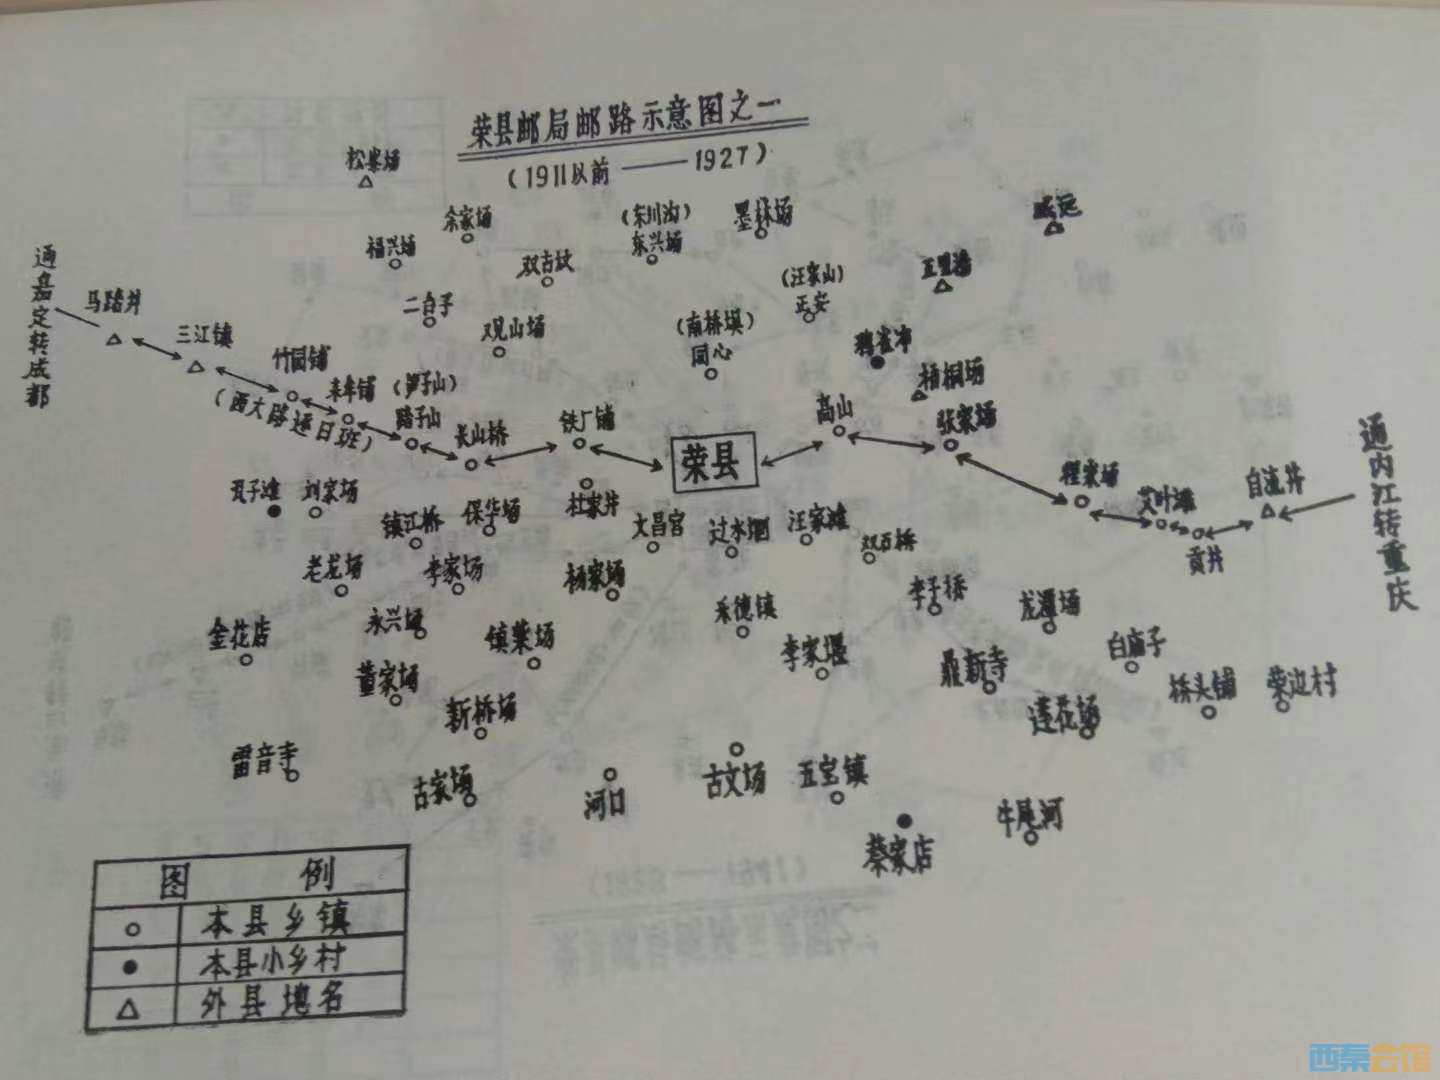 荣县邮局邮路示意图之一
(1911以前——1927)
松峯场
余家场
福兴场
双古坟
(东川沟)
东兴场
墨林场
威远
二台子
观山场
(汪家山)
正安
(南桥埧)
同心
鸦雀冲
梧桐场
通嘉定转成都
马踏井
三江镇
竹园铺
来牟铺
(笋子山)
踏子山
长山桥
铁厂铺
荣县
高山
张家场
程家场
艾叶滩
贡井
自流井
通内江转重庆
(西大路逐日班)
刘家场
镇江桥
保华场
杜家井
文昌宫
过水垇
汪家滩
双石桥
老龙场
李家场
杨家场
永兴场
镇紫场
来德镇
李子桥
龙潭场
金花店
董家场
新桥场
李家堰
鼎新寺
白庙子
莲花场
桥头铺
荣边村
雷音寺
古家场
河口
古文场
五宝镇
蔡家店
牛尾河
图例
本县乡镇
本县小乡村
外县地名
西秦会馆